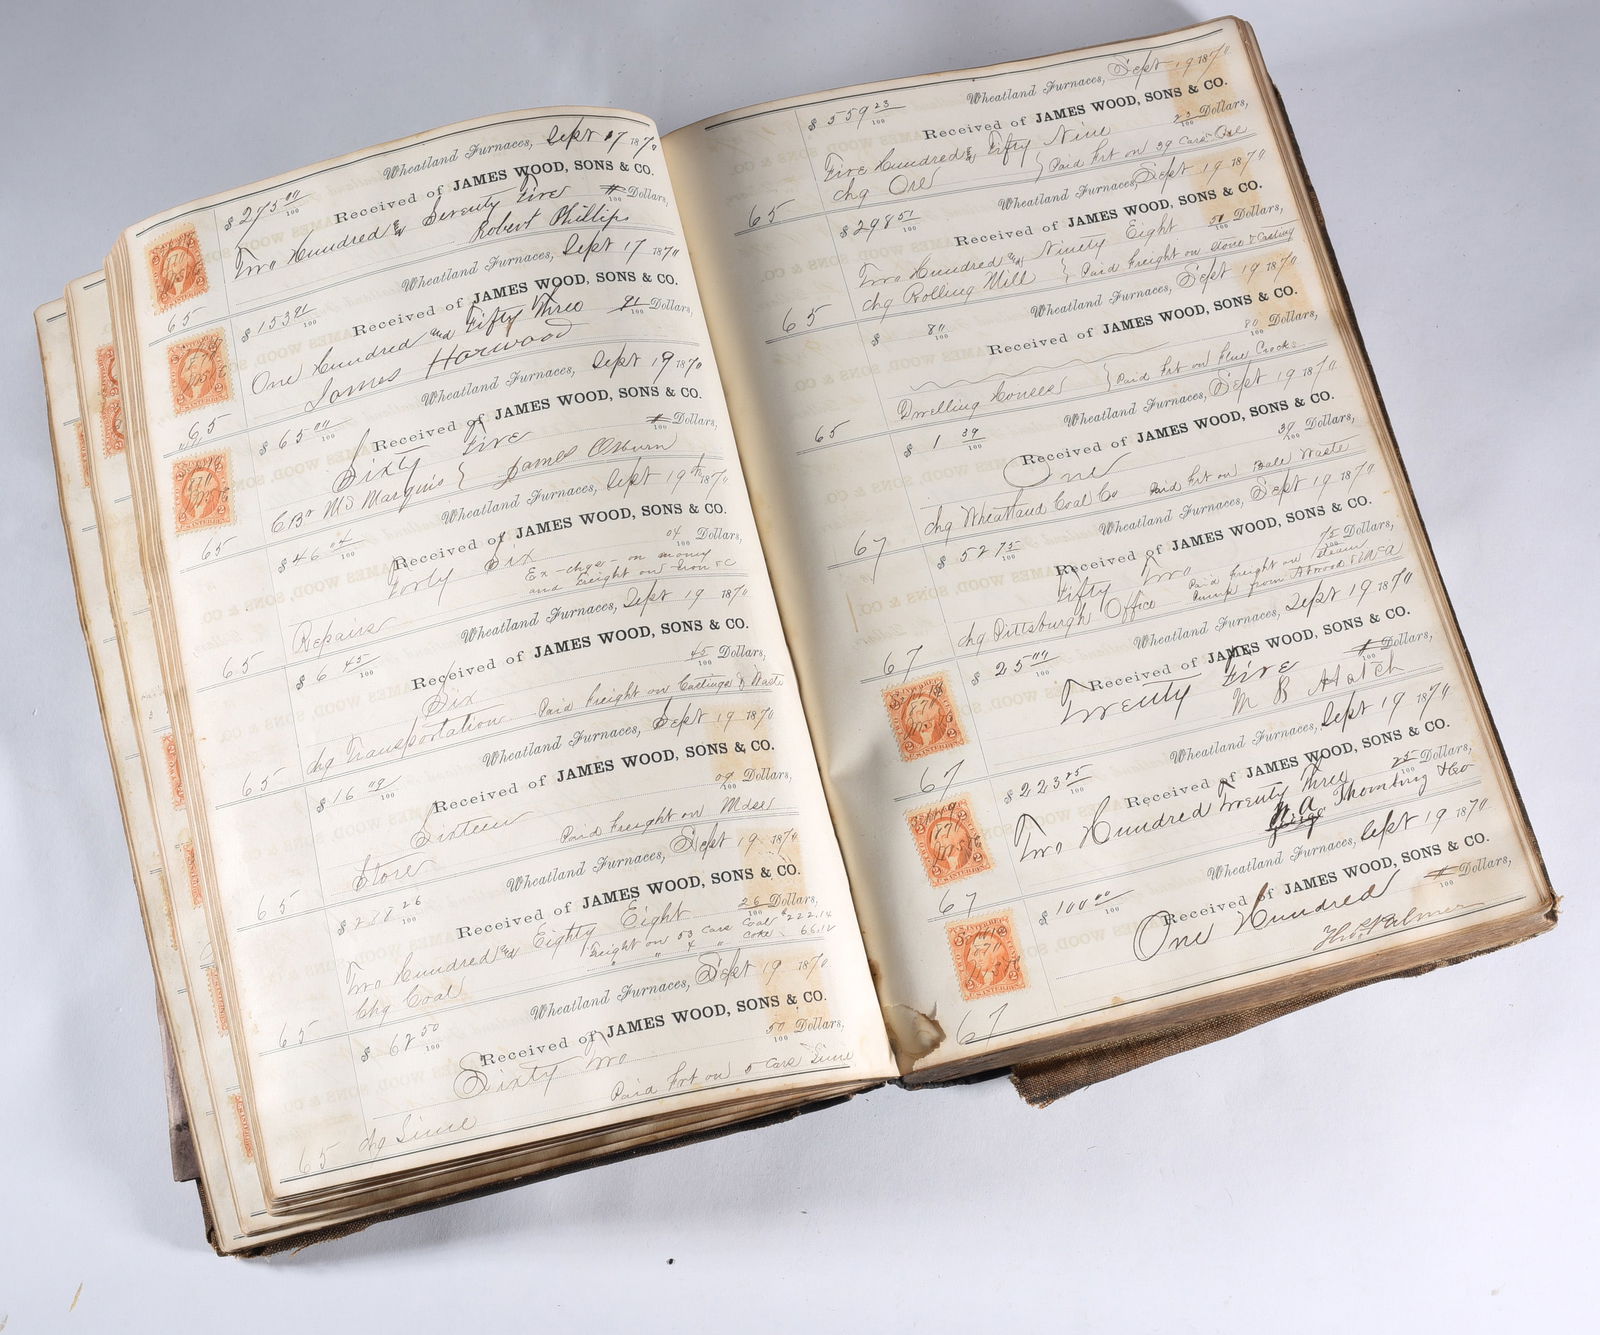 Wheatland Furnaces, Sept 17 1870
$275 00/100 Received of JAMES WOOD, SONS & CO.
Two Hundred & Seventy Five Dollars,
Robert Phillips
65
Wheatland Furnaces, Sept 17 1870
$153 91/100 Received of JAMES WOOD, SONS & CO.
One Hundred and Fifty Three 91/100 Dollars,
James Harwood
65
Wheatland Furnaces, Sept 19 1870
$65 00/100 Received of JAMES WOOD, SONS & CO.
Sixty Five Dollars,
James Osburn
65
Wheatland Furnaces, Sept 19th 1870
$46 04/100 Received of JAMES WOOD, SONS & CO.
Forty Six 04/100 Dollars,
Ex-chge - on money
and Freight on Iron &C
Repairs
65
Wheatland Furnaces, Sept 19 1870
$6 45/100 Received of JAMES WOOD, SONS & CO.
Six 45/100 Dollars,
chg Transportation Paid Freight on Castings & Waste
65
Wheatland Furnaces, Sept 19 1870
$16 09/100 Received of JAMES WOOD, SONS & CO.
Sixteen 09/100 Dollars,
Store Paid Freight on Mdse
65
Wheatland Furnaces, Sept 19 1870
$288 26/100 Received of JAMES WOOD, SONS & CO.
Two Hundred and Eighty Eight 26/100 Dollars,
Freight on 53 Cars Coal $222.14
" " 4 " Coke 66.12
Chg Coal
65
Wheatland Furnaces, Sept 19 1870
$62 50/100 Received of JAMES WOOD, SONS & CO.
Sixty Two 50/100 Dollars,
chg Lime Paid Frt on 5 Cars Lime
65
Wheatland Furnaces, Sept 19 1870
$559 23/100 Received of JAMES WOOD, SONS & CO.
Five Hundred & Fifty Nine 23/100 Dollars,
chg Ore } Paid Frt on 39 Cars Ore
65
Wheatland Furnaces, Sept 19 1870
$298 51/100 Received of JAMES WOOD, SONS & CO.
Two Hundred and Ninety Eight Dollars,
chg Rolling Mill } Paid Freight on Stone & Casting
65
Wheatland Furnaces, Sept 19 1870
$ 80/100 Received of JAMES WOOD, SONS & CO.
80/100 Dollars,
Dwelling Houses } Paid Frt on Flue Crocks
65
Wheatland Furnaces, Sept 19 1870
$1 39/100 Received of JAMES WOOD, SONS & CO.
One 39/100 Dollars,
chg Wheatland Coal Co Paid Frt on Bale Waste
67
Wheatland Furnaces, Sept 19 1870
$52 75/100 Received of JAMES WOOD, SONS & CO.
Fifty Two 75/100 Dollars,
Paid Freight on Steam
chg Pittsburgh Office Pump from Atwood &
67
Wheatland Furnaces, Sept 19 1870
$25 00/100 Received of JAMES WOOD, SONS & CO.
Twenty Five Dollars,
M B Hatch
67
Wheatland Furnaces, Sept 19 1870
$223 25/100 Received of JAMES WOOD, SONS & CO.
Two Hundred Twenty Three 25/100 Dollars,
67
Wheatland Furnaces, Sept 19 1870
$100 00/100 Received of JAMES WOOD, SONS & CO.
One Hundred Dollars,
Thos Palmer
67